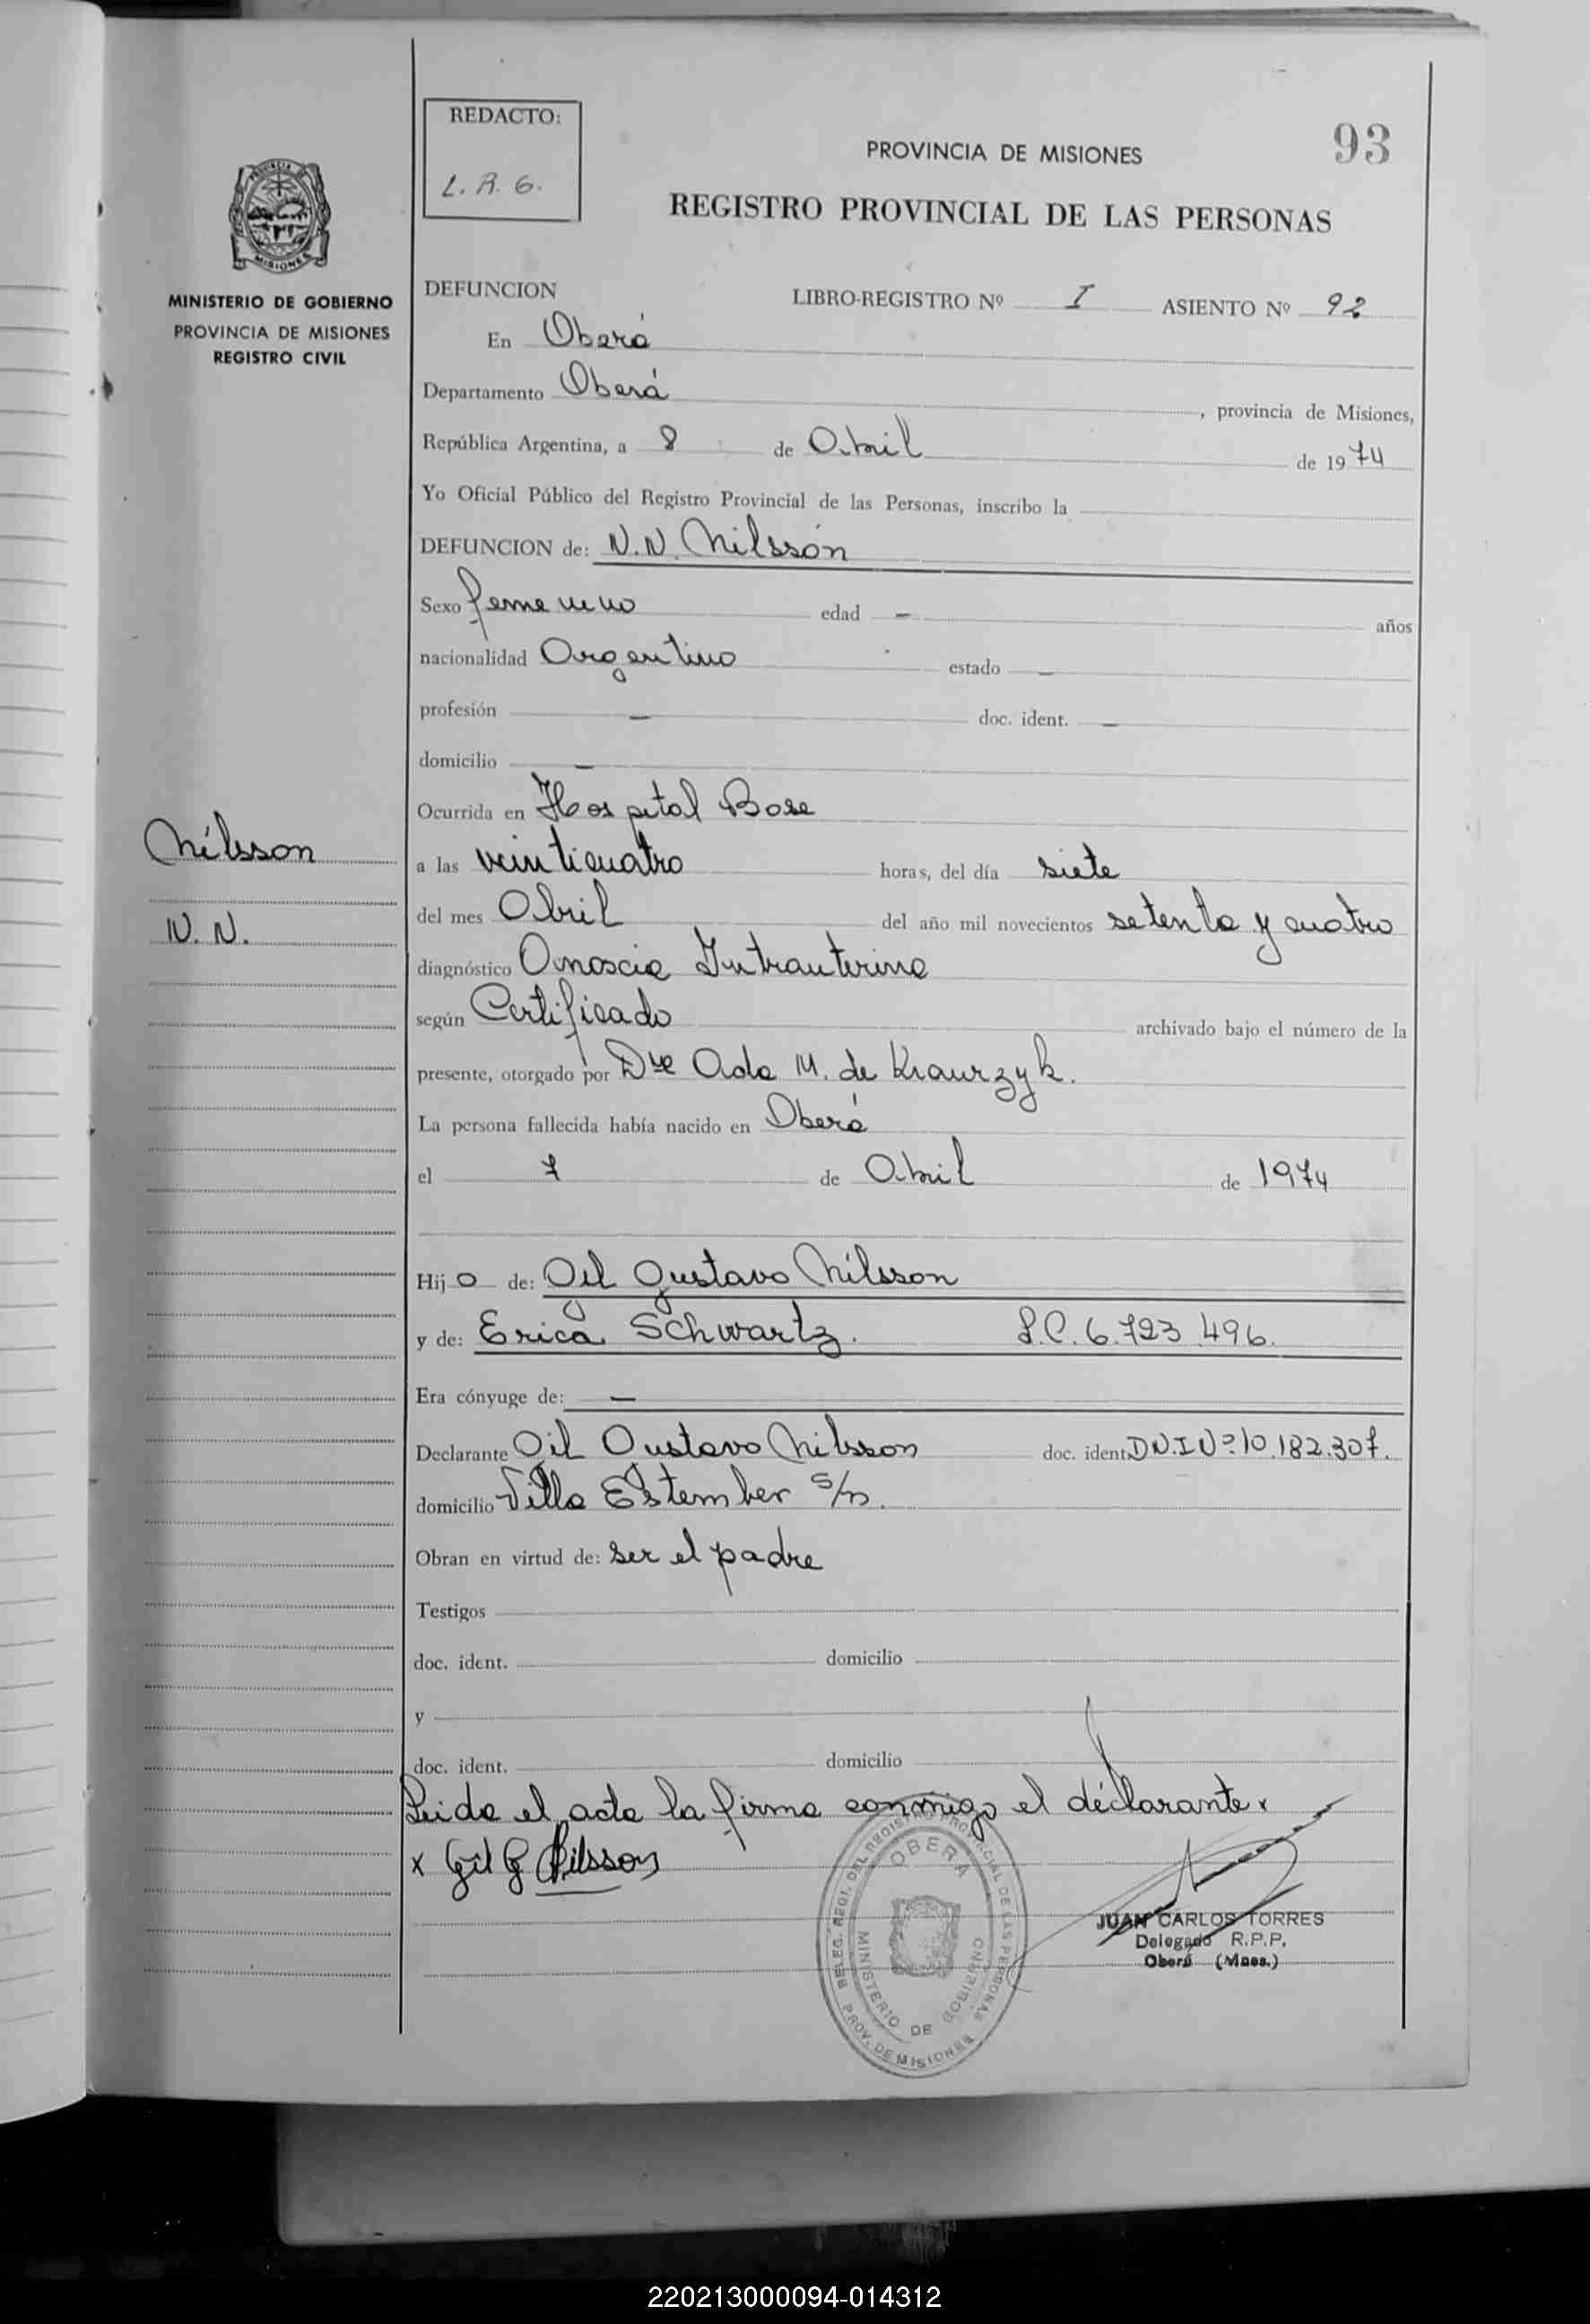 REDACTO:
L. R. G.
PROVINCIA DE MISIONES
93
REGISTRO PROVINCIAL DE LAS PERSONAS
MISIONES
MINISTERIO DE GOBIERNO
PROVINCIA DE MISIONES
REGISTRO CIVIL
DEFUNCION LIBRO-REGISTRO Nº I ASIENTO Nº 92
En Oberá
Departamento Oberá , provincia de Misiones,
República Argentina, a 8 de Abril de 1974
Yo Oficial Público del Registro Provincial de las Personas, inscribo la
DEFUNCION de: N.N. Nilsson
Sexo femenino edad – años
nacionalidad Argentino estado –
profesión – doc. ident. –
domicilio –
Ocurrida en Hospital Base
Nilsson
N. N.
a las veinticuatro horas, del día siete
del mes Abril del año mil novecientos setenta y cuatro
diagnóstico Anoscia Intrauterina
según Certificado archivado bajo el número de la
presente, otorgado por Dra Ada M. de Krawrzyk.
La persona fallecida había nacido en Oberá
el 7 de Abril de 1974
Hijo de: Gil Gustavo Nilsson
y de: Erica Schwartz. L.C. 6.723.496.
Era cónyuge de: –
Declarante Gil Gustavo Nilsson doc. ident. D.N.I Nº 10.182.307.
domicilio Villa Estember s/n.
Obran en virtud de: ser el padre
Testigos
doc. ident. domicilio
y
doc. ident. domicilio
Leida el acta la firma conmigo el declarante x
x Gil G Nilsson
DELEG. REGI. DEL REGISTRO PROVINCIAL DE LAS PERSONAS
OBERA
MINISTERIO DE GOBIERNO
PROV. DE MISIONES
JUAN CARLOS TORRES
Delegado R.P.P.
Oberá (Mnes.)
220213000094-014312